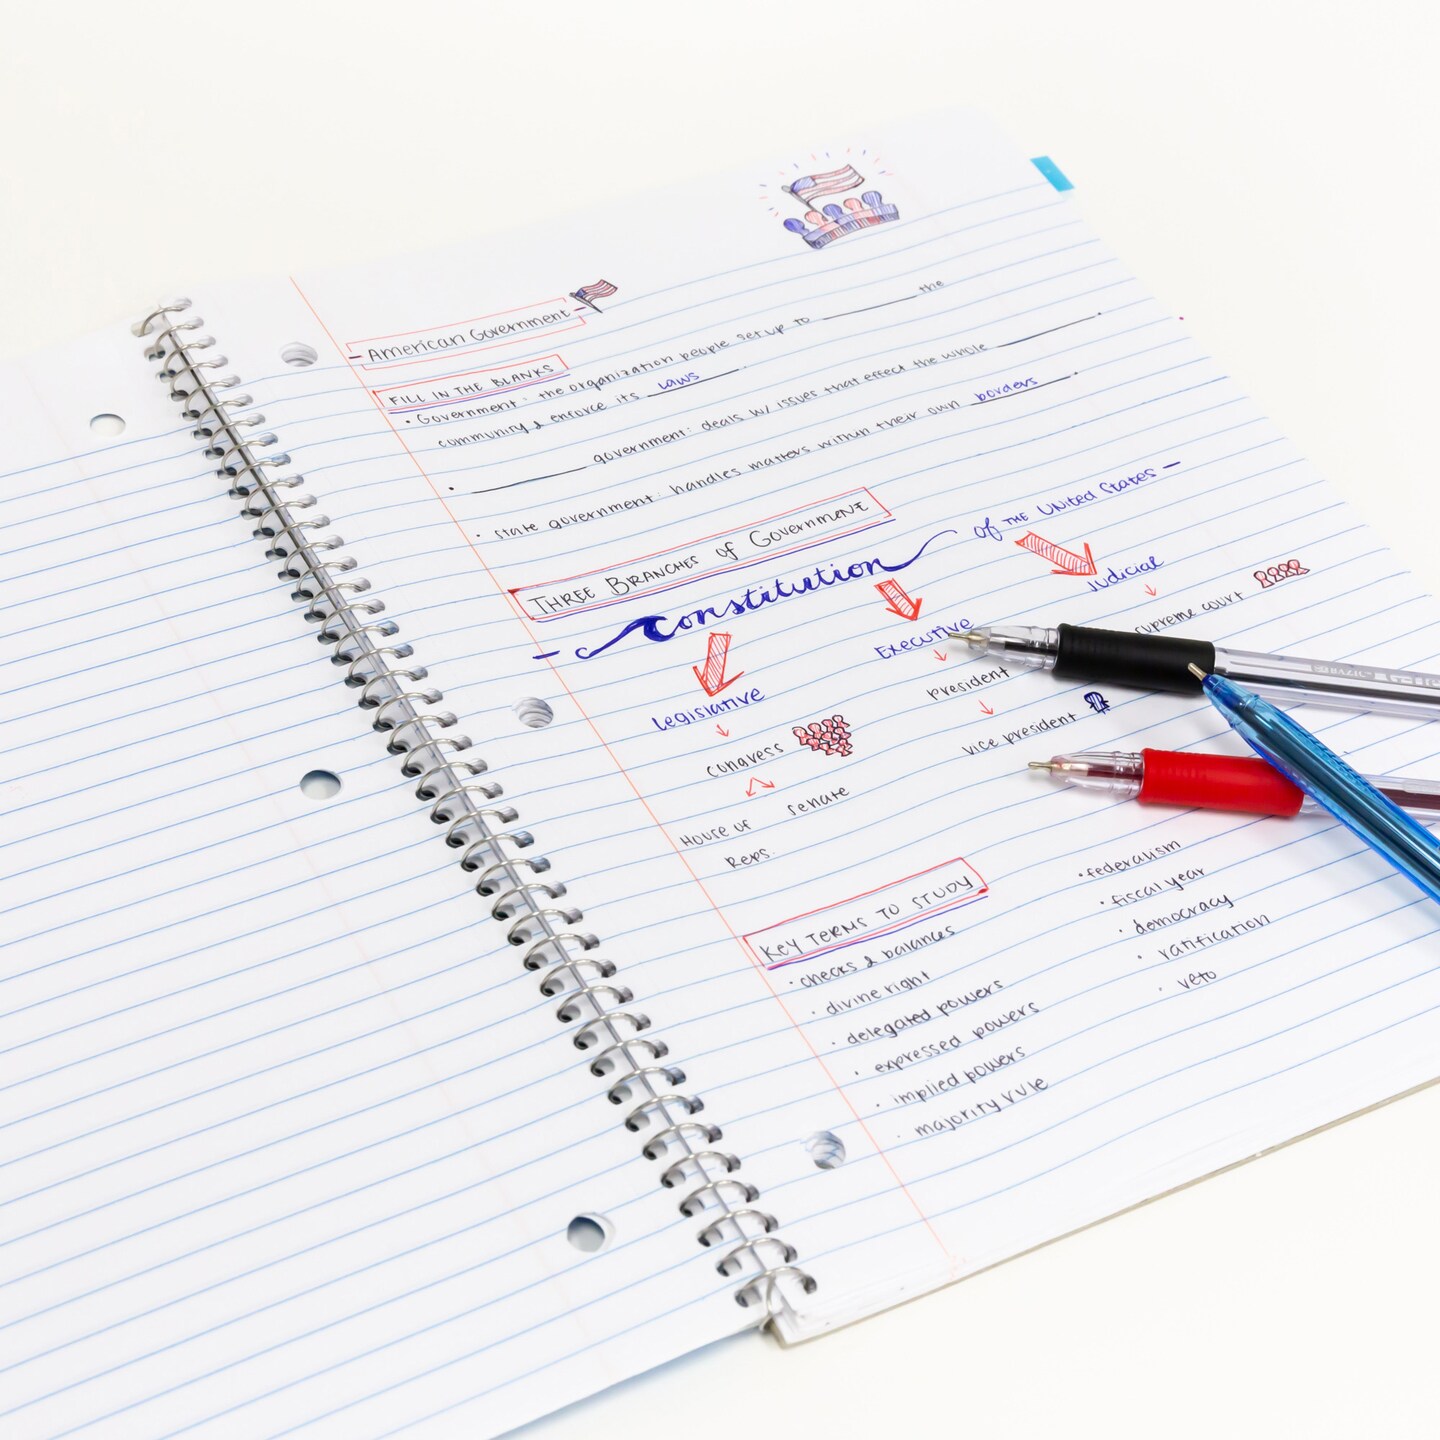 American Government
FILL IN THE BLANKS
• Government: the organization people set up to ________ the
community & enforce its laws.
• ________ government: deals w/ issues that effect the whole ________.
• state government: handles matters within their own borders.
THREE BRANCHES of GOVERNMENT
Constitution of THE UNITED States
Legislative Executive Judicial
congress President supreme court
House of Senate vice president
Reps.
KEY TERMS TO STUDY
• checks & balances
• divine right
• delegated powers
• expressed powers
• implied powers
• majority rule
• federalism
• fiscal year
• democracy
• ratification
• veto
BAZIC